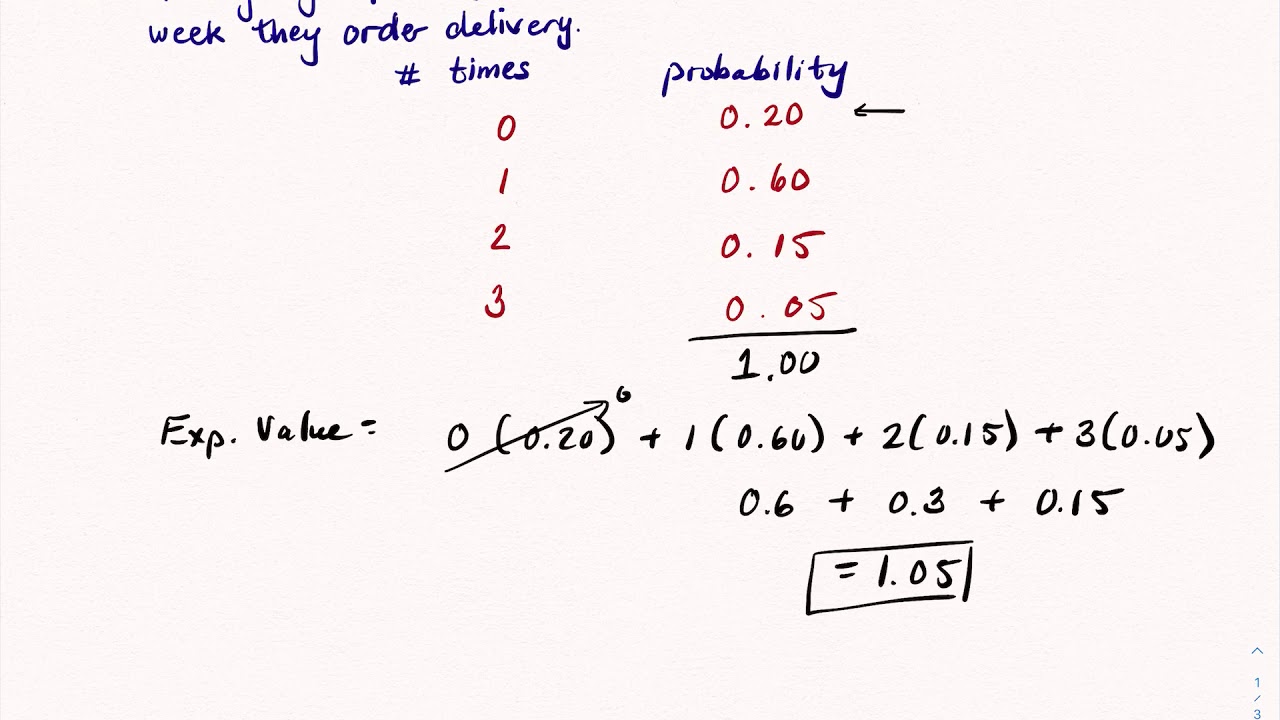 week they order delivery.
# times probability
0 0.20 ←
1 0.60
2 0.15
3 0.05
1.00
Exp. Value = 0 (0.20) 0 + 1 (0.60) + 2 (0.15) + 3 (0.05)
0.6 + 0.3 + 0.15
= 1.05
1
/
3